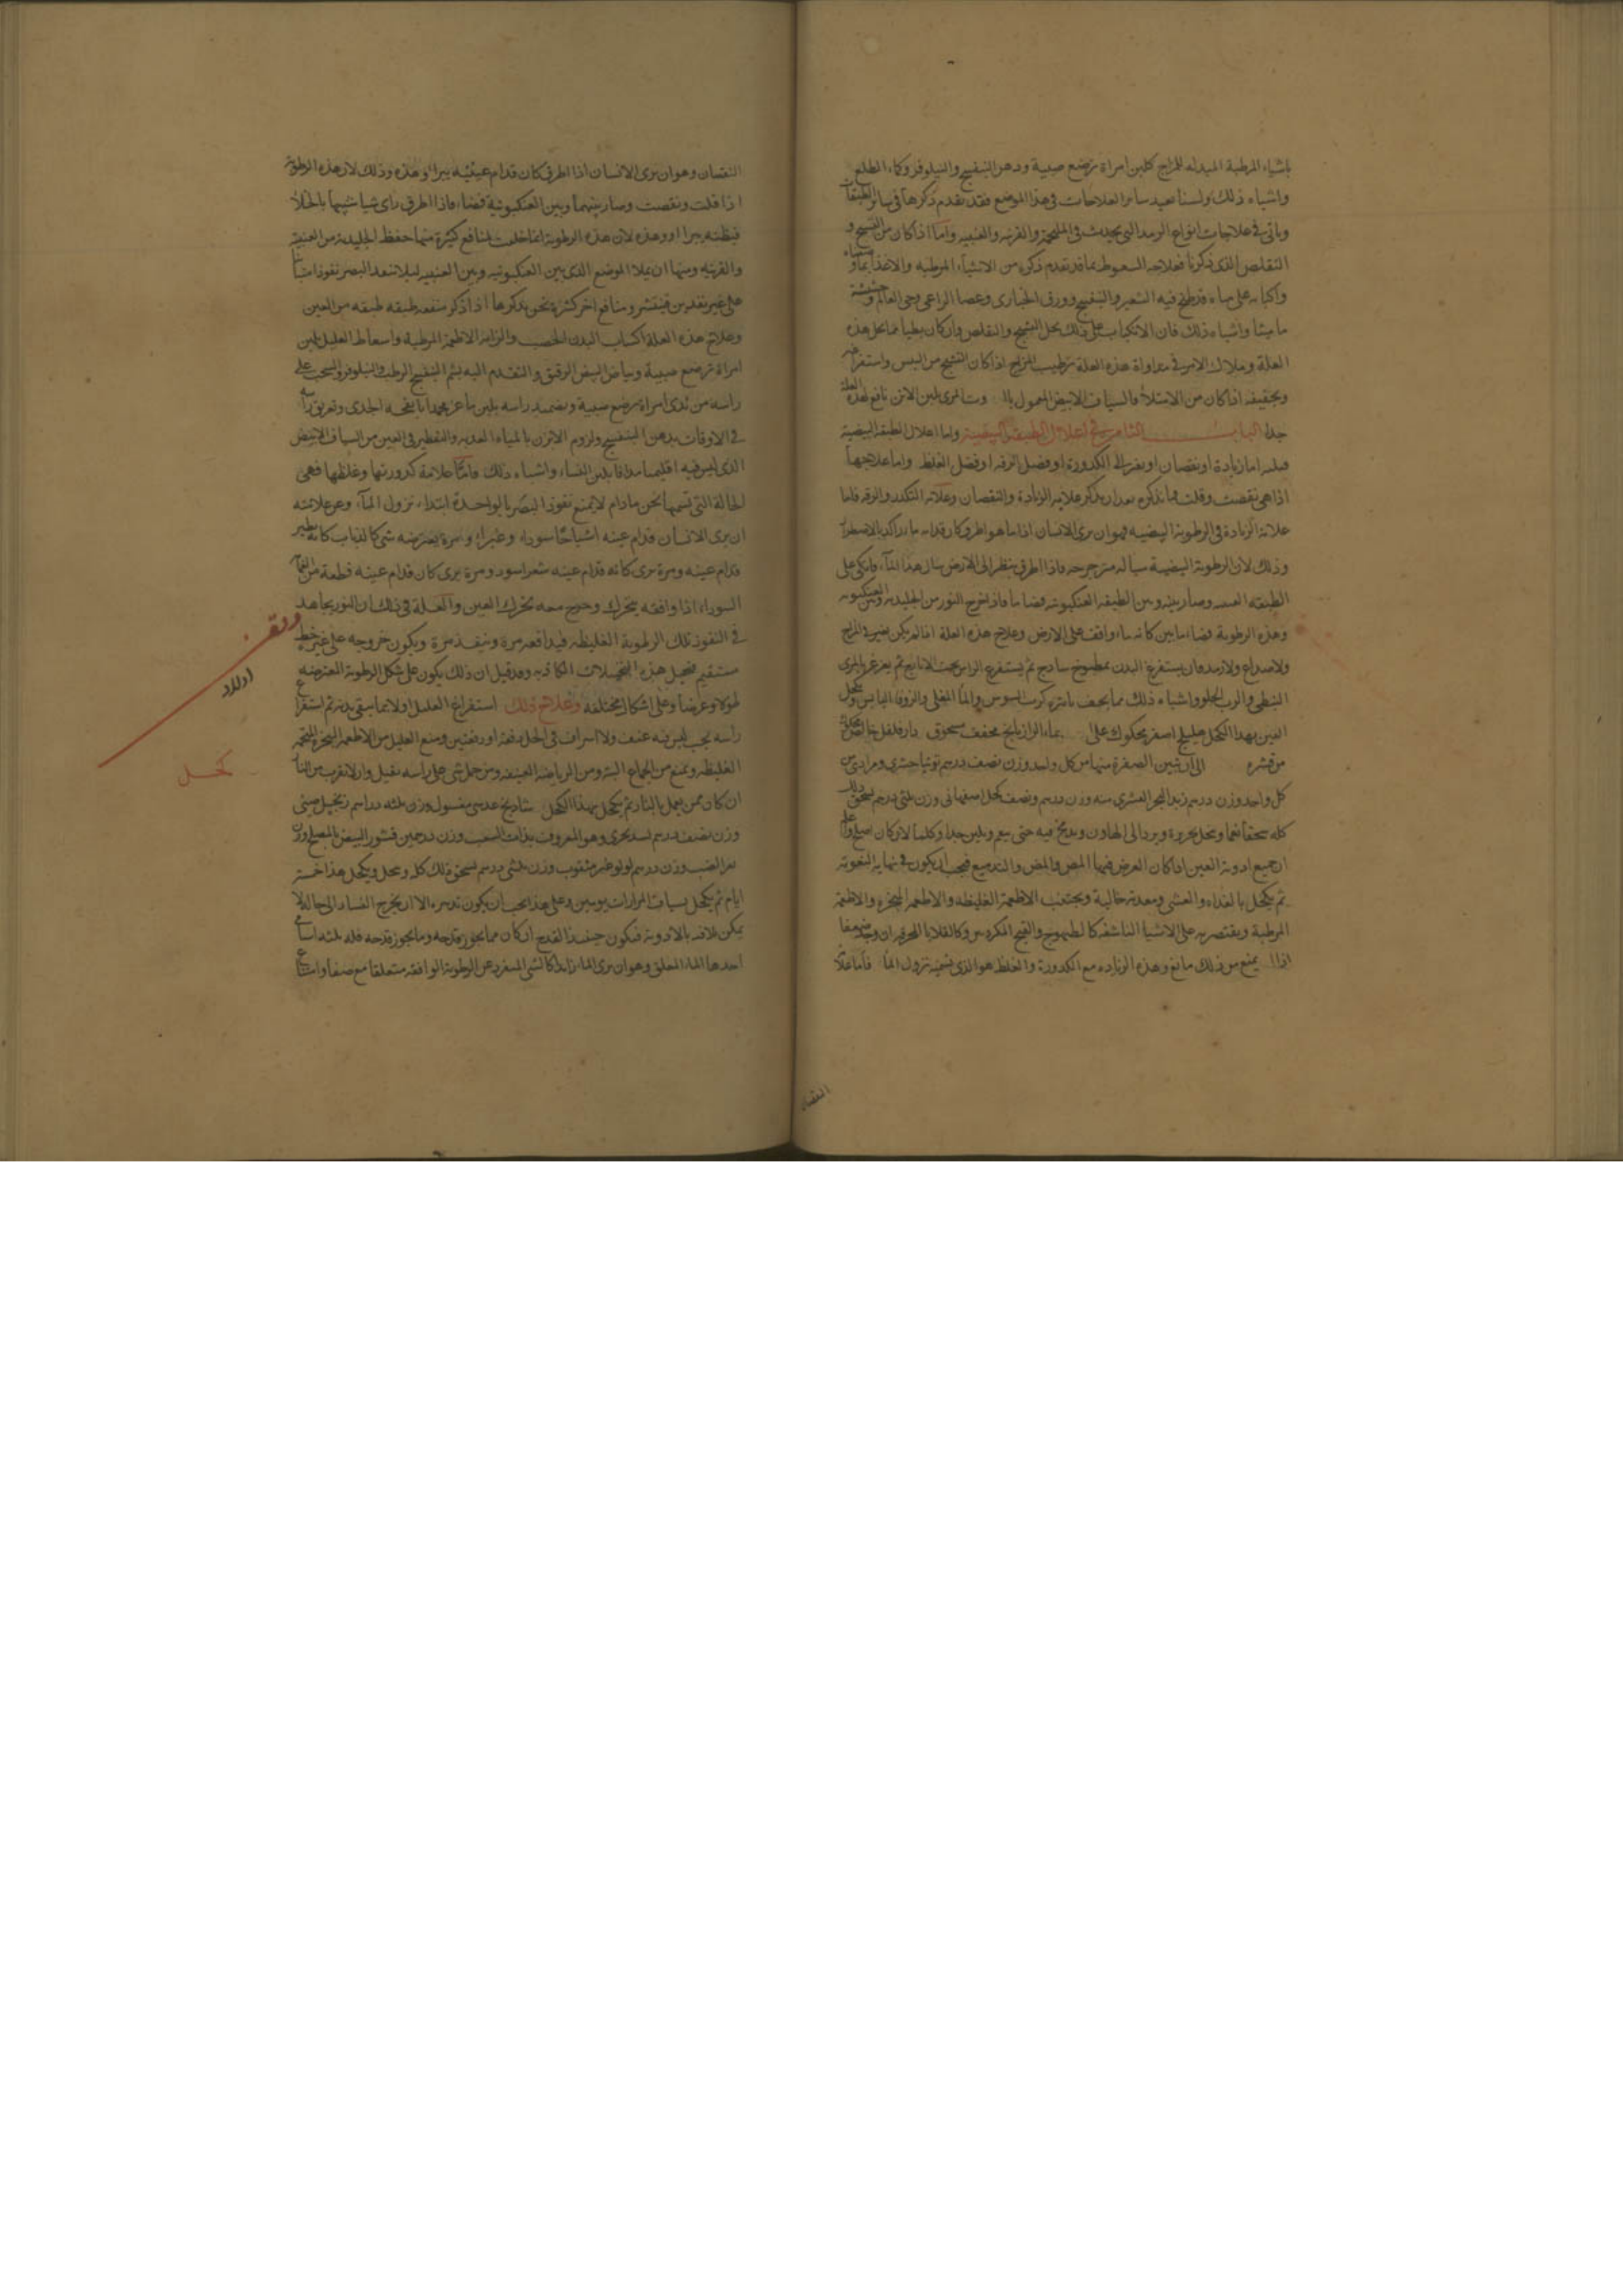 باشياء المرطبة المبدله للمزاج كلبن امراة ترضع صبية ودهن البنفسج والنيلوفر وكماء الطلع
واشباه ذلك ولسنا نعيد سائر العلاجات في هذا الموضع فقد تقدم ذكرها في سائر الطبقات
وياتي في علاجات انواع الرمد التي يحدث في الملتحمة والقرنيه والعنبيه واما اذا كان من التشنج و
التقلص الذي ذكرنا فعلاجه السعوط بما قد تقدم ذكره من الاشياء المرطبه والاغذا
واكبابه على مياه قد طبخ فيه الشعير والبنفسج وورق الخبازى وعصا الراعى وحى العالم وحشيشة
ماميثا واشباه ذلك فان الانكباب على ذلك يحل التشنج والتقلص وان كان بطيا مما يحل هذه
العلة وملاك الامر في مداواة هذه العلة ترطيب المزاج اذا كان التشنج من اليبس واستفراغه
وتجفيفه اذا كان من الامتلأ والشياف الابيض المعمول بالـ وتـ لمرى بلبن الاتن نافع لهذه العلة
جدا الباب الثامن في اعلال الطبقه البيضية واما اعلال الطبقه البيضية
فـ اما زيادة او نقصان او تغير الى الكدورة او فضل الرقه او فضل الغلظ واما علاجها
اذا هي نقصت وقلت مما نذكره بعد ان نذكر علامه الزيادة والنقصان وعلامه التكدر والرقه فاما
علامة الزيادة في الرطوبة البيضيه فهو ان يرى الانسان اذا ما هو اطرق كان قدامه ماء راكد بالاضطراب
وذلك لان الرطوبة البيضية سيالة مترجرجه فاذا اطرق ينظر الى الارض سال هذا الماء واتكى على
الطبقه العنبيه وصار بينه وبين الطبقه العنكبوتيه فضا ما فاذا خرج النور من الجليديه وبين العنكبوتيه
وهذه الرطوبة فضا اما بين كانه ماء واقف على الارض وعلاج هذه العلة اذا لم يكن تغير في المزاج
ولا صداع ولا رمد فان يستفرغ البدن بمطبوخ ساذج ثم يستفرغ الراس بحب الايارج ثم يغرغر بالمرى
النبطي والرب الحلو واشباه ذلك مما يجفف باسره كرب السوس والماء المغلى والزوفا اليابس وتكحل
العين بهذا الكحل هليلج اصفر محكوك على بماء الرازيانج مجفف مسحوق دارفلفل خالص محكك
من قشره الى ان تبين الصفرة منهما من كل واحد وزن نصف درهم توتيا حشرى ومرادسنـ من
كل واحد وزن درهم زبد البحر العشرى منه وزن درهم ونصف كحل اصفهانى وزن ثلثى درهم يسحق ذلك
كله سحقا نعما وينخل بحريرة ويرد الى الهاون ويدبخ فيه حتى ينعم ويلين جدا وكلما لان كان اصلح واعلم
ان جميع ادوية العين اذا كان الغرض فيها المص والمض والتدميع فيجب ان يكون في نهاية النعومة
ثم يكحل بالغداء والعشى ومعدته خالية ويجتنب الاطعمة الغليظه والاطعمه المبخرة والاطعمة
المرطبة ويقتصر به على الاشياء الناشفه كالطيهوج والقبج المكردس وكالقلايا المحرقه ان وجد ضعفا
اذا لا يمنع من ذلك مانع وهذه الزياده مع الكدورة والغلظ هو الذي نسميه نزول الماء فاما علامة
النقصان
النقصان وهو ان يرى الانسان اذا اطرق كان قدام عينيه بيرا او هذه وذلك لان هذه الرطوبة
اذا قلت ونقصت وصار بينهما وبين العنكبوتية فضاء فاذا اطرق راى شيا شبيها بالخلأ
فيظنه بيرا او وهذه لان هذه الرطوبة انما خلقت لمنافع كثيرة منها حفظ الجليدية من العنبية
والقرنيه ومنها ان يملا الموضع الذي بين العنكبوتيه وبين العنبيه ليلا ينفذ البصر نفوذا متسعا
على غير تقدير فينتشر ومنافع اخر كثيرة نحن نذكرها اذا ذكر منفعه طبقه طبقه من العين
وعلاج هذه العلة اكساب البدن الخصب والزامه الاطعمة المرطبة واسعاط العليل بلبن
امراة ترضع صبية وبياض البيض الرقيق والتقدم اليه بشم البنفسج الرطب والنيلوفر والسحب على
راسه من ثدى امراة ترضع صبية وتضميد راسه بلبن ماعز مجمدا بانفحه الجدى وتعريق راسه
في الاوقات بدهن البنفسج ولزوم الابزن بالمياه العذبه والتقطير في العين من الشياف الابيض
الذى ليس فيه اقليميا مدافا بلبن النساء واشباه ذلك فامّا علامة كدورتها وغلظها فهى
الحالة التي تسميها نحن مادام لا يمنع نفوذ البصر بالواحدة ابتداء نزول الماء ومن علامته
ان يرى الانسان قدام عينه اشباحًا سوداء وغبراء ومرة يعترضه شى كالذباب كانه يطير
قدام عينه ومرة يرى كانه قدام عينه شعر اسود ومرة يرى كان قدام عينه قطعة من الغمام
السوداء اذا وافقه يتحرك وخرج معه تحرك العين والعلة في ذلك ان النور يجاهد
في النفوذ تلك الرطوبة الغليظه فيدافعه مرة وينفذ مرة ويكون خروجه على غير خط
مستقيم فيخيل هذه التخيلات الكاذبه وقد قيل ان ذلك يكون على شكل الرطوبة المعترضه
طولا وعرضا وعلى اشكال مختلفه وعلاج ذلك استفراغ العليل اولا بما ينقى بدنه ثم استفراغ
راسه بحب ليس فيه عنف ولا اسراف في الحل دفعة او دفعتين ومنع العليل من الاطعمه المبخرة المتخمة
الغليظه ويمنع من الجماع البته ومن الرياضة العنيفه ومن حمل شى على راسه ثقيل وان لا يقرب من النار
ان كان ممن يعمل بالنار ثم يكحل بهذا الكحل شاذنج عدسى مغسول وزن ثلثه دراهم زنجبيل صينى
وزن نصف درهم بسد بحرى وهو المعروف بذات الشعب وزن درهمين قشور البيض بالمصلح وزن
بعر الضب وزن درهم لولو غير مثقوب وزن ثلثى درهم يسحق ذلك كله وينخل ويكحل هذا خمسة
ايام ثم يكحل بشياف المرارات يومين وعلى هذا يجب ان يكون تدبيره الا ان يخرج الفساد الى حال لا
يمكن تلافه بالادوية فيكون حينئذ القدح ان كان مما يجوز قدحه وما يجوز قدحه فله ثلثه اسامى
احدها الماء المعلق وهو ان يرى الماء زايدا كالشى المنفرد عن الرطوبة الواقفه متعلقا مع صفا وامتناع
كحل